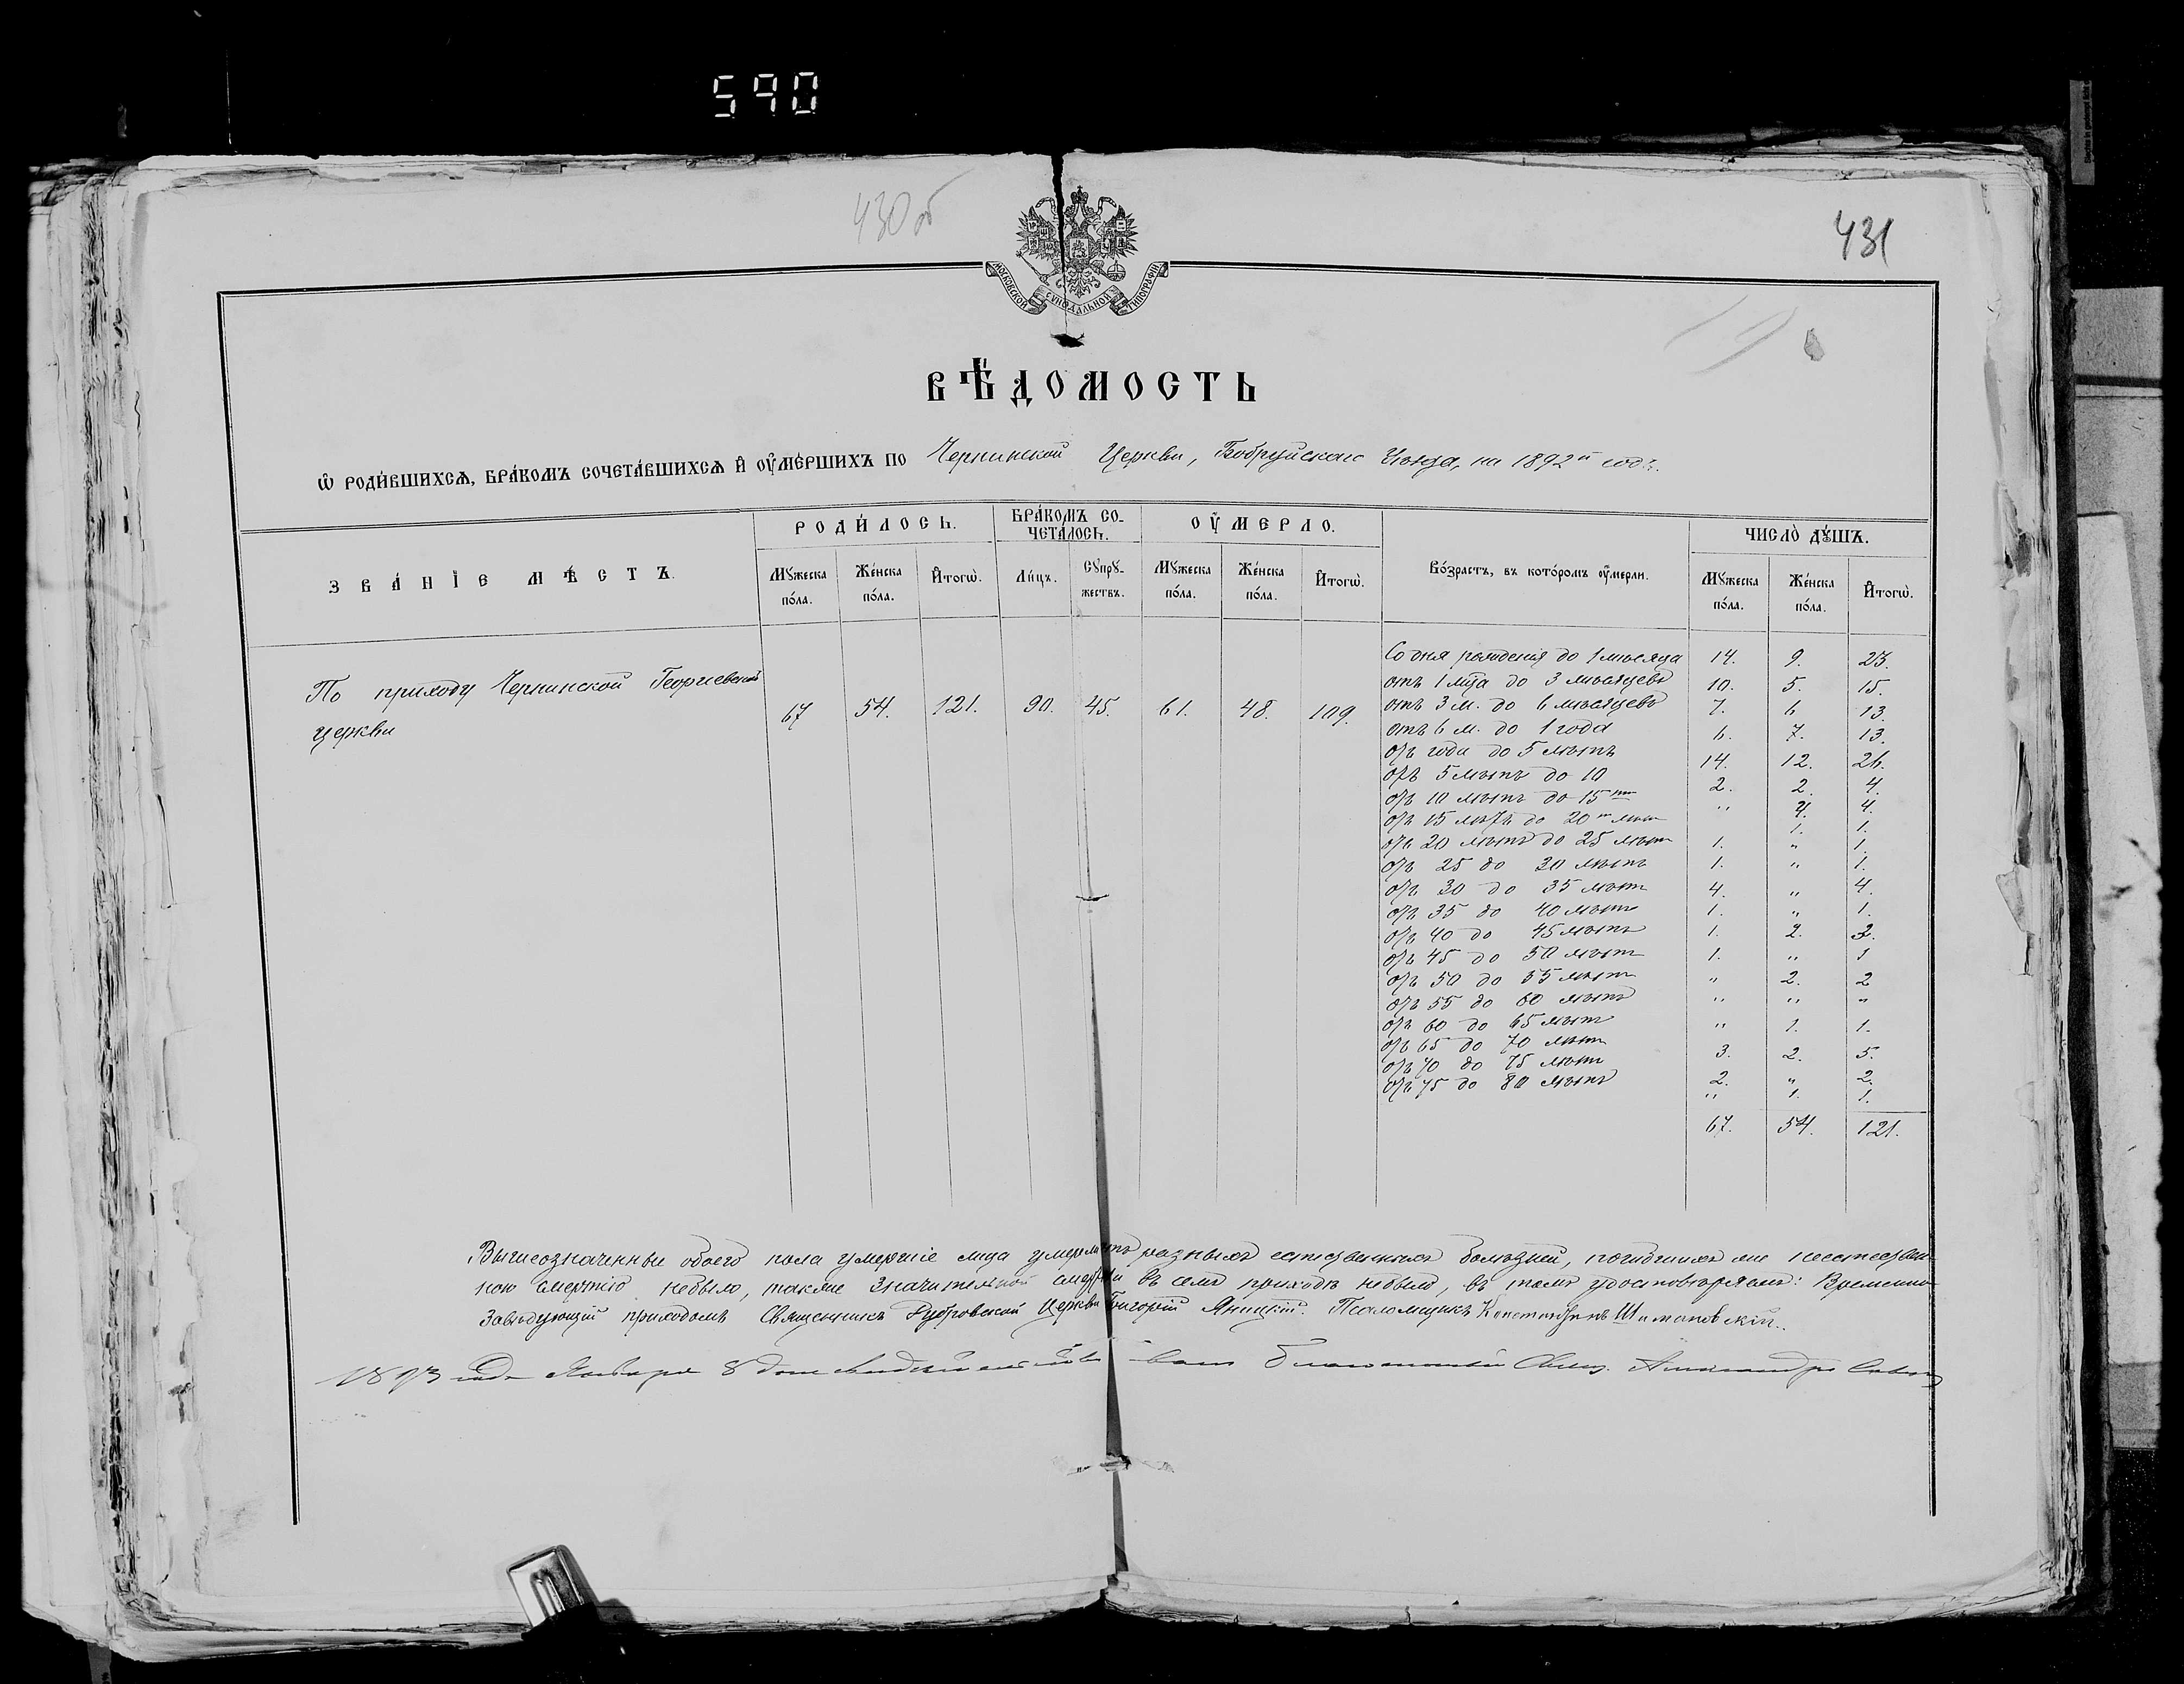 590
430 об
431
МОСКОВСКОЙ СѴНОДАЛЬНОЙ ТИПОГРАФІИ
ВѢДОМОСТЬ
Ѡ РОДИ́ВШИХСѦ, БРА́КОМЪ СОЧЕТА́ВШИХСѦ И҆ ОУ҆МЕ́РШИХЪ ПО Чернинской Церкви, Бобруйскаго Уѣзда, на 1892й годъ.
ЗВА́НІЕ МѢ́СТЪ.
РОДИ́ЛОСЬ.
БРА́КОМЪ СО-
ЧЕТА́ЛОСЬ.
ОУ҆́МЕРЛО.
Во́зрастъ, въ кото́ромъ оу҆́мерли.
ЧИСЛО̀ ДꙊ́ШЪ.
Мꙋжеска по́ла.
Же́нска по́ла.
И҆тогѡ̀.
Ли́цъ.
Сꙋпрꙋ-
жествъ.
Мꙋжеска по́ла.
Же́нска по́ла.
И҆тогѡ̀.
Мꙋжеска по́ла.
Же́нска по́ла.
И҆тогѡ̀.
По приходу Чернинской Георгіевской
церкви
67 54. 121. 90. 45. 61. 48. 109.
Со дня рожденія до 1 мѣсяца 14. 9. 23.
отъ 1 мца до 3 мѣсяцевъ 10. 5. 15.
отъ 3 м. до 6 мѣсяцевъ 7. 6 13.
отъ 6 м. до 1 года 6. 7. 13.
отъ года до 5 лѣтъ 14. 12. 26.
отъ 5 лѣтъ до 10 2. 2. 4.
отъ 10 лѣтъ до 15ти " 4. 4.
отъ 15 лѣтъ до 20ти лѣтъ 1. 1.
отъ 20 лѣтъ до 25 лѣтъ 1. " 1.
отъ 25 до 30 лѣтъ 1. " 1.
отъ 30 до 35 лѣтъ 4. " 4.
отъ 35 до 40 лѣтъ 1. " 1.
отъ 40 до 45 лѣтъ 1. 2. 3.
отъ 45 до 50 лѣтъ 1. " 1
отъ 50 до 55 лѣтъ " 2. 2
отъ 55 до 60 лѣтъ " " "
отъ 60 до 65 лѣтъ " 1. 1.
отъ 65 до 70 лѣтъ 3. 2. 5.
отъ 70 до 75 лѣтъ 2. " 2.
отъ 75 до 80 лѣтъ " 1. 1.
67. 54. 121.
Вышеозначенные обоего пола умершіе лица умерли отъ разныхъ естественныхъ болѣзней, погибшихъ же неестествен-
ною смертію небыло, также значительной смерти въ семъ приходѣ небыло, въ томъ удостовѣряемъ: Временно
Завѣдующій приходомъ Священникъ Дубровской Церкви Григорій Яницкій. Псаломщикъ Константинъ Шимановскій.
1893 года Января 8 дня Александръ